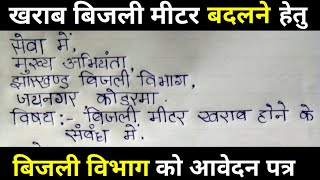 खराब बिजली मीटर बदलने हेतु
सेवा में,
मुख्य अभियंता,
झारखण्ड बिजली विभाग,
जयनगर कोडरमा
विषय:- बिजली मीटर खराब होने के
संबंध में.
बिजली विभाग को आवेदन पत्र